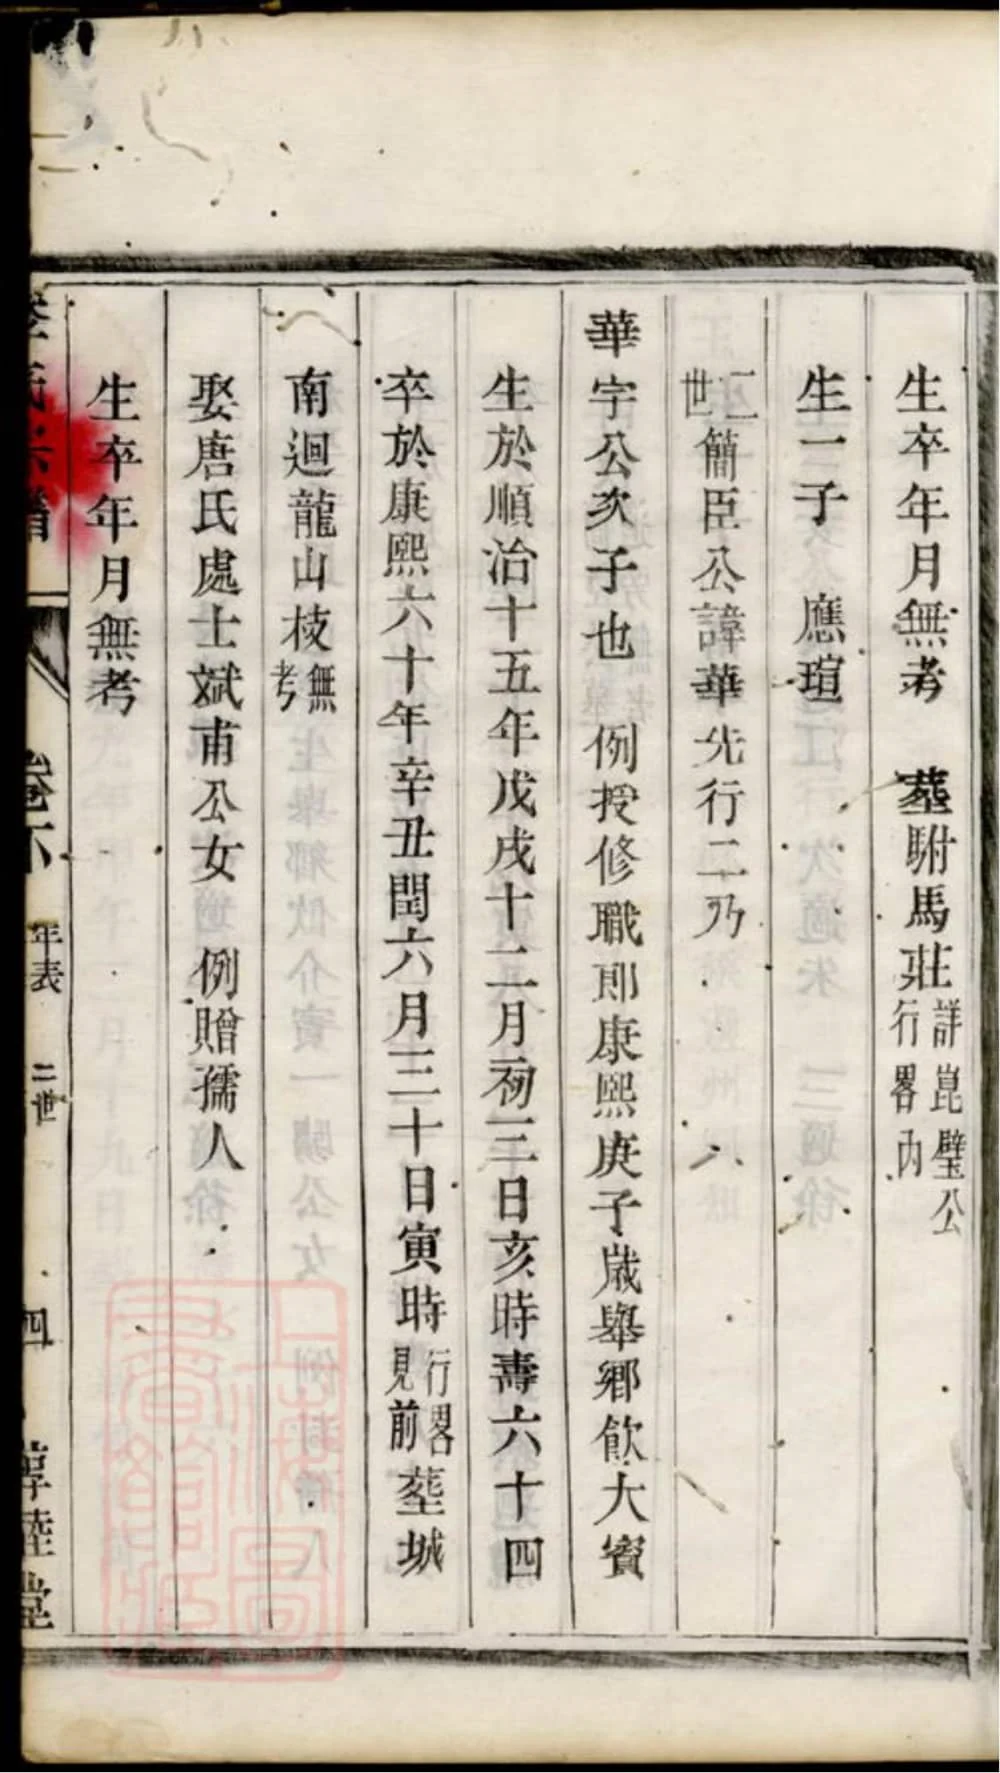 生卒年月無考　葬駙馬莊詳崑璧公行畧內
生一子　應瑄
二世簡臣公諱華先行二乃
華宇公次子也　例授修職郎康熙庚子歲舉鄉飲大賓
生於順治十五年戊戌十二月初三日亥時壽六十四
卒於康熙六十年辛丑閏六月三十日寅時行畧見前塟城
南迴龍山枝無考
娶唐氏處士斌甫公女　例贈孺人
生卒年月無考
氏宗譜　卷下　年表　二世　四　惇睦堂